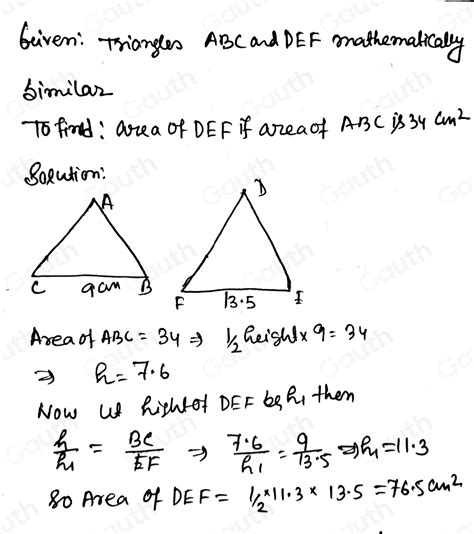 Given: Triangles ABC and DEF mathematically
similar
To find: area of DEF if area of ABC is 34 cm²
Solution:
A
D
C 9cm B
F 13.5 E
Area of ABC = 34 ⇒ 1/2 height × 9 = 34
⇒ h = 7.6
Now let hight of DEF be h₁ then
h/h₁ = BC/EF ⇒ 7.6/h₁ = 9/13.5 ⇒ h₁ = 11.3
So Area of DEF = 1/2 × 11.3 × 13.5 = 76.5 cm²